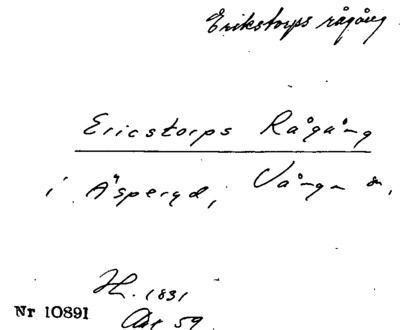 Erikstorps rågång
Ericstorps Rågång
i Åsperyd, Vånga sn,
H. 1831
Nr 10891
Akt 59.